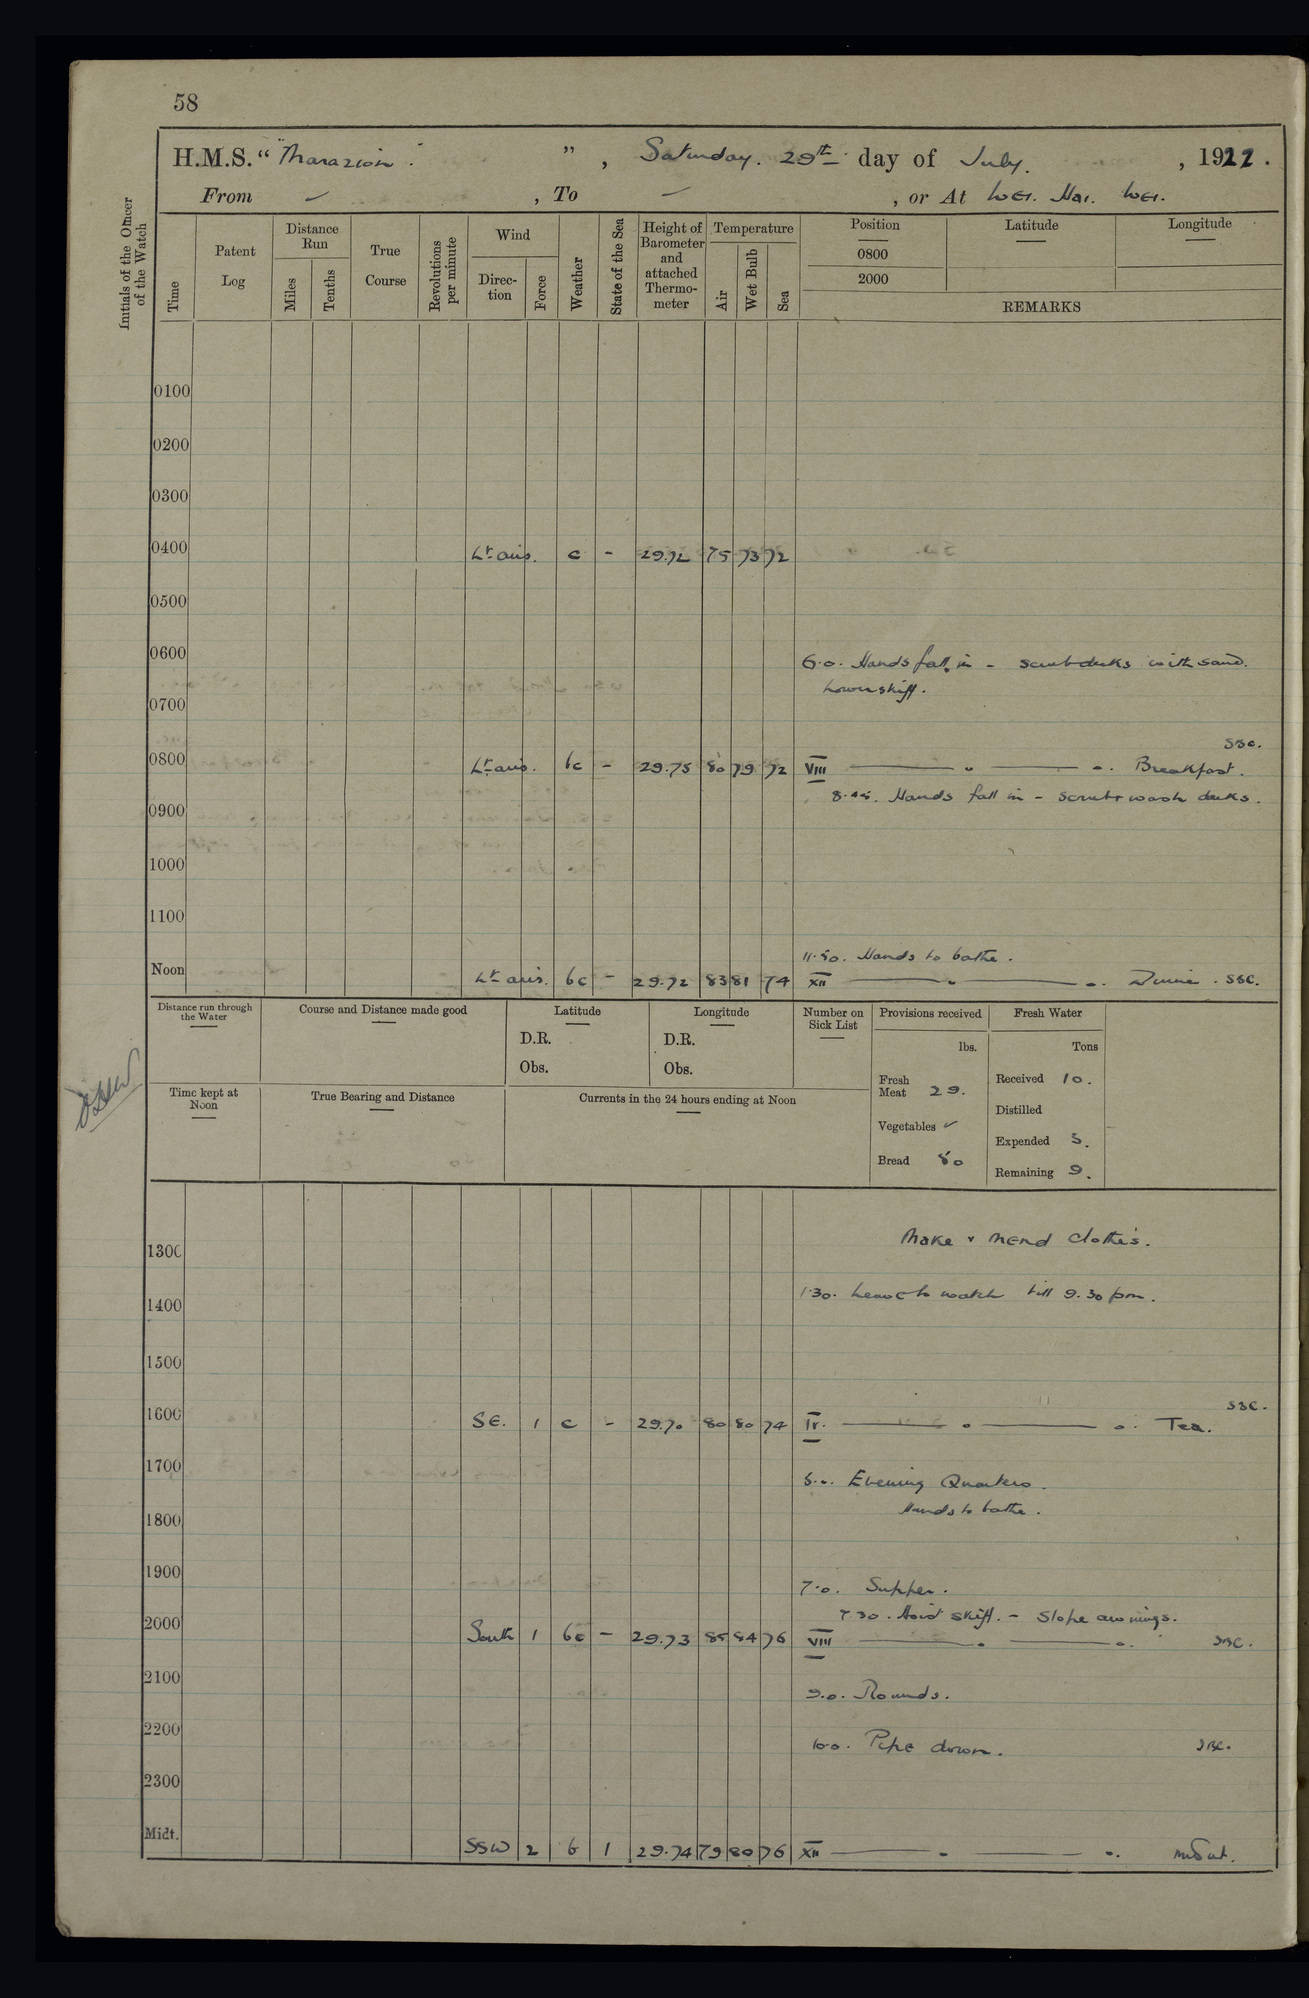 58
H.M.S. “Marazion.” , Saturday. 29th day of July. , 1922.
From ✓ , To — , or At Wei. Hai. Wei.
Initials of the Officer of the Watch
Time
Patent Log
Distance Run
Miles
Tenths
True Course
Revolutions per minute
Wind
Direction
Force
Weather
State of the Sea
Height of Barometer and attached Thermometer
Temperature
Air
Wet Bulb
Sea
Position Latitude Longitude
0800
2000
REMARKS
0100
0200
0300
0400 Lt airs. c - 29.72 75 73 72
0500
0600 6.0. Hands fall in - scrub decks with sand.
Lower skiff.
0700
SBC.
0800 Lt airs. bc - 29.75 80 79 72 VIII Breakfast.
8.45. Hands fall in - scrub & wash decks.
0900
1000
1100
11.50. Hands to bathe.
Noon Lt airs. bc - 29.72 83 81 74 XII Dinner. SBC.
Distance run through the Water
Course and Distance made good
Latitude
D.R.
Obs.
Longitude
D.R.
Obs.
Number on Sick List
Provisions received
lbs.
Fresh Meat 29.
Vegetables ✓
Bread 80
Fresh Water
Tons
Received 10.
Distilled
Expended 5.
Remaining 9.
Time kept at Noon
True Bearing and Distance
Currents in the 24 hours ending at Noon
Make & mend clothes.
1300
1.30. Leave to watch till 9.30 pm.
1400
1500
SBC.
1600 SE. 1 c - 29.70 80 80 74 IV. Tea.
1700 5.0. Evening Quarters.
Hands to bathe.
1800
1900 7.0. Supper.
7.30. Hoist skiff. - Slope awnings.
2000 South 1 bc - 29.73 85 84 76 VIII SBC.
2100 9.0. Rounds.
2200 10.0. Pipe down. SBC.
2300
Midt. SSW 2 b 1 29.74 79 80 76 XII